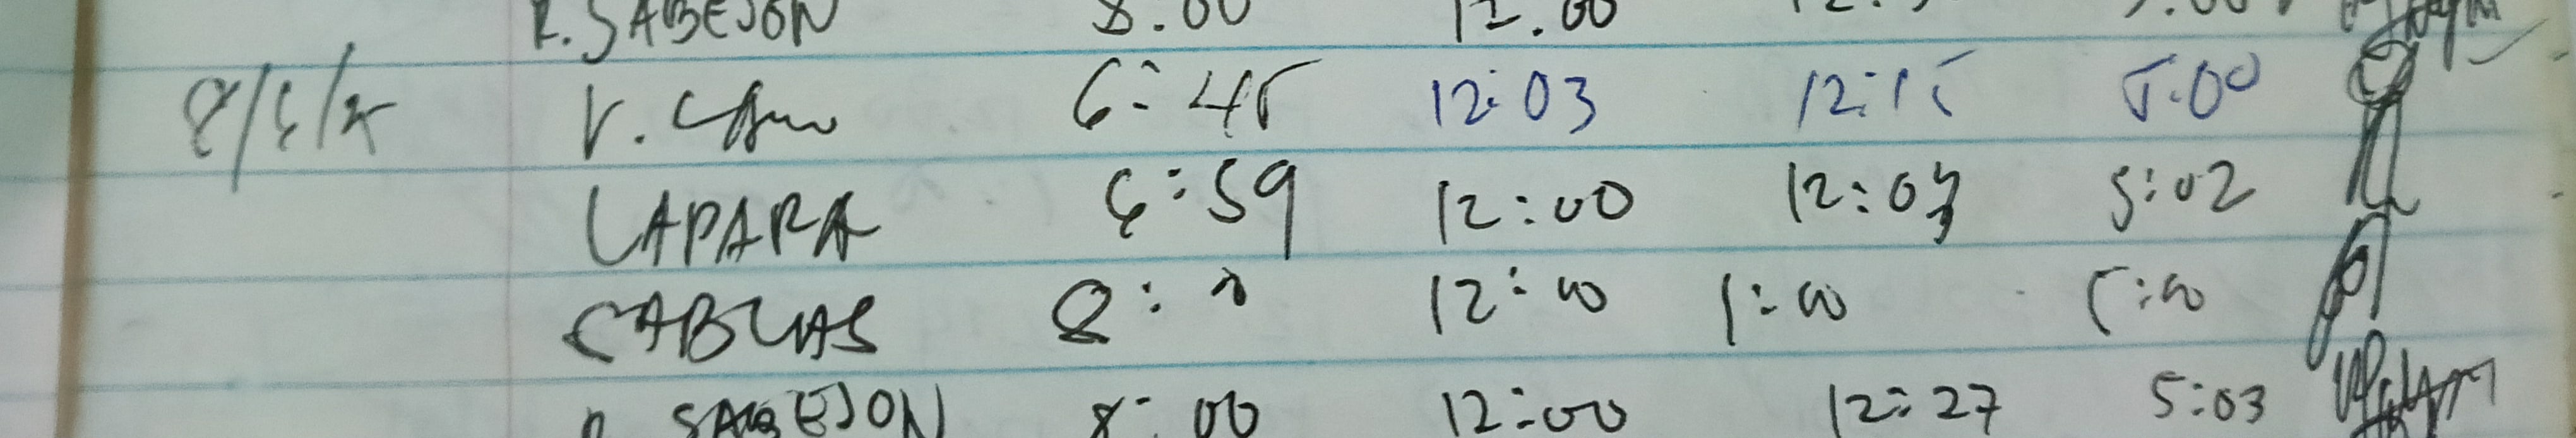 R. SABEJON 8:00 12:00
V. 6:45 12:03 12:15 5:00
LAPARA 6:59 12:00 5:02
CABUAS 8: 12:00 1:00 5:00
R. SABEJON 8:00 12:00 12:27 5:03